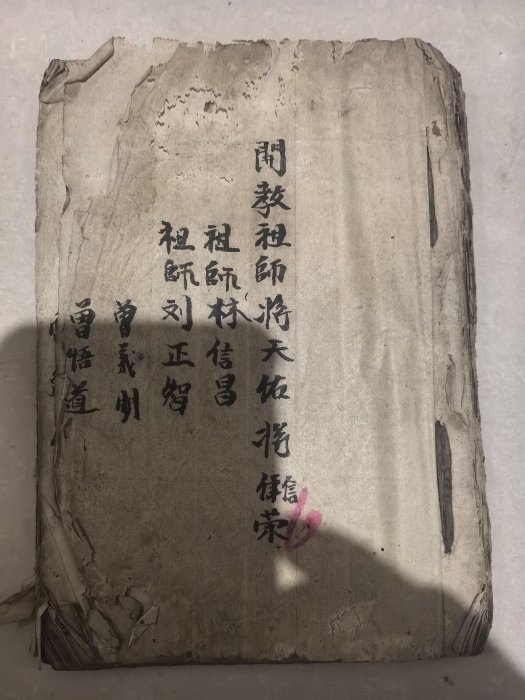 開教祖師将天佑 将信荣
祖師林信昌
祖師刘正智
曾义明
曾悟道